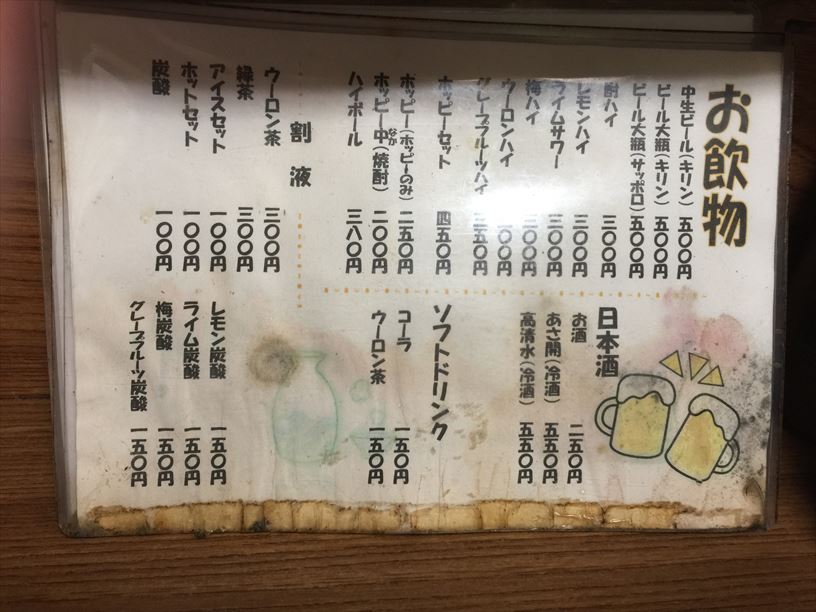 お飲物
中生ビール（キリン） 五〇〇円
ビール大瓶（キリン） 五〇〇円
ビール大瓶（サッポロ） 五〇〇円
酎ハイ 三〇〇円
レモンハイ 三〇〇円
ライムサワー 三〇〇円
梅ハイ 三〇〇円
ウーロンハイ 三〇〇円
グレープフルーツハイ 三五〇円
ホッピーセット 四五〇円
ホッピー（ホッピーのみ） 二五〇円
ホッピー中（焼酎） 二〇〇円
なか
ハイボール 三八〇円
割液
ウーロン茶 三〇〇円
緑茶 三〇〇円
アイスセット 一〇〇円
ホットセット 一〇〇円
炭酸 一〇〇円
日本酒
お酒 二五〇円
あさ開（冷酒） 五五〇円
高清水（冷酒） 五五〇円
ソフトドリンク
コーラ 一五〇円
ウーロン茶 一五〇円
レモン炭酸 一五〇円
ライム炭酸 一五〇円
梅炭酸 一五〇円
グレープフルーツ炭酸 一五〇円